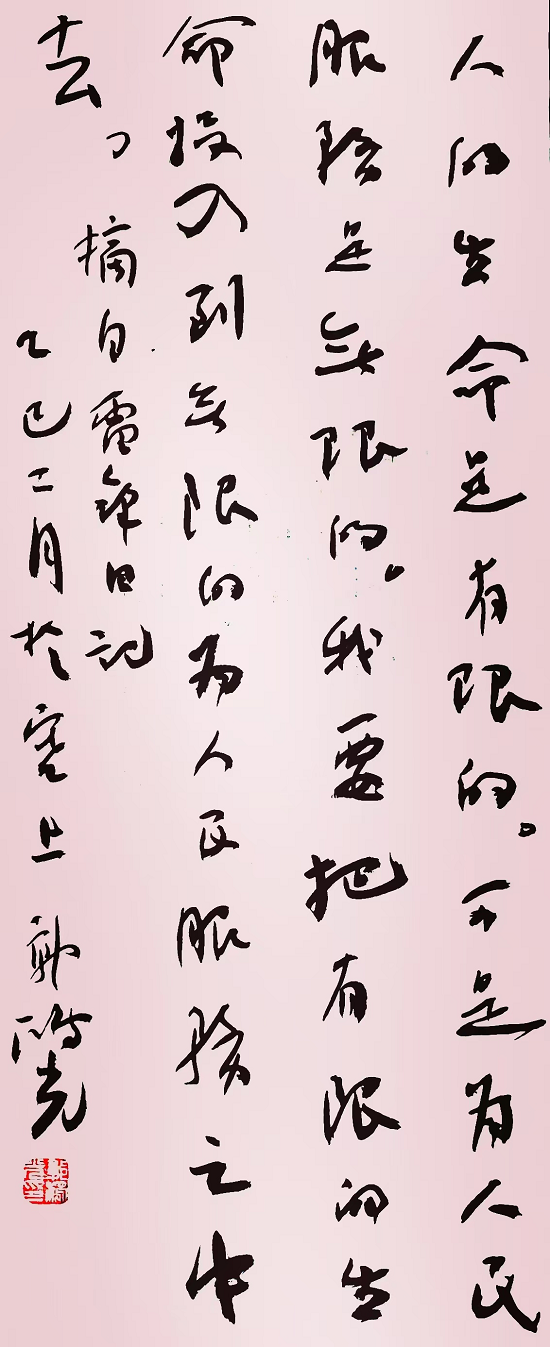 人的生命是有限的。可是为人民
服務是無限的。我要把有限的生
命投入到无限的为人民服務之中
去。
摘自雷锋日記
乙巳二月於宮上郭鴻光